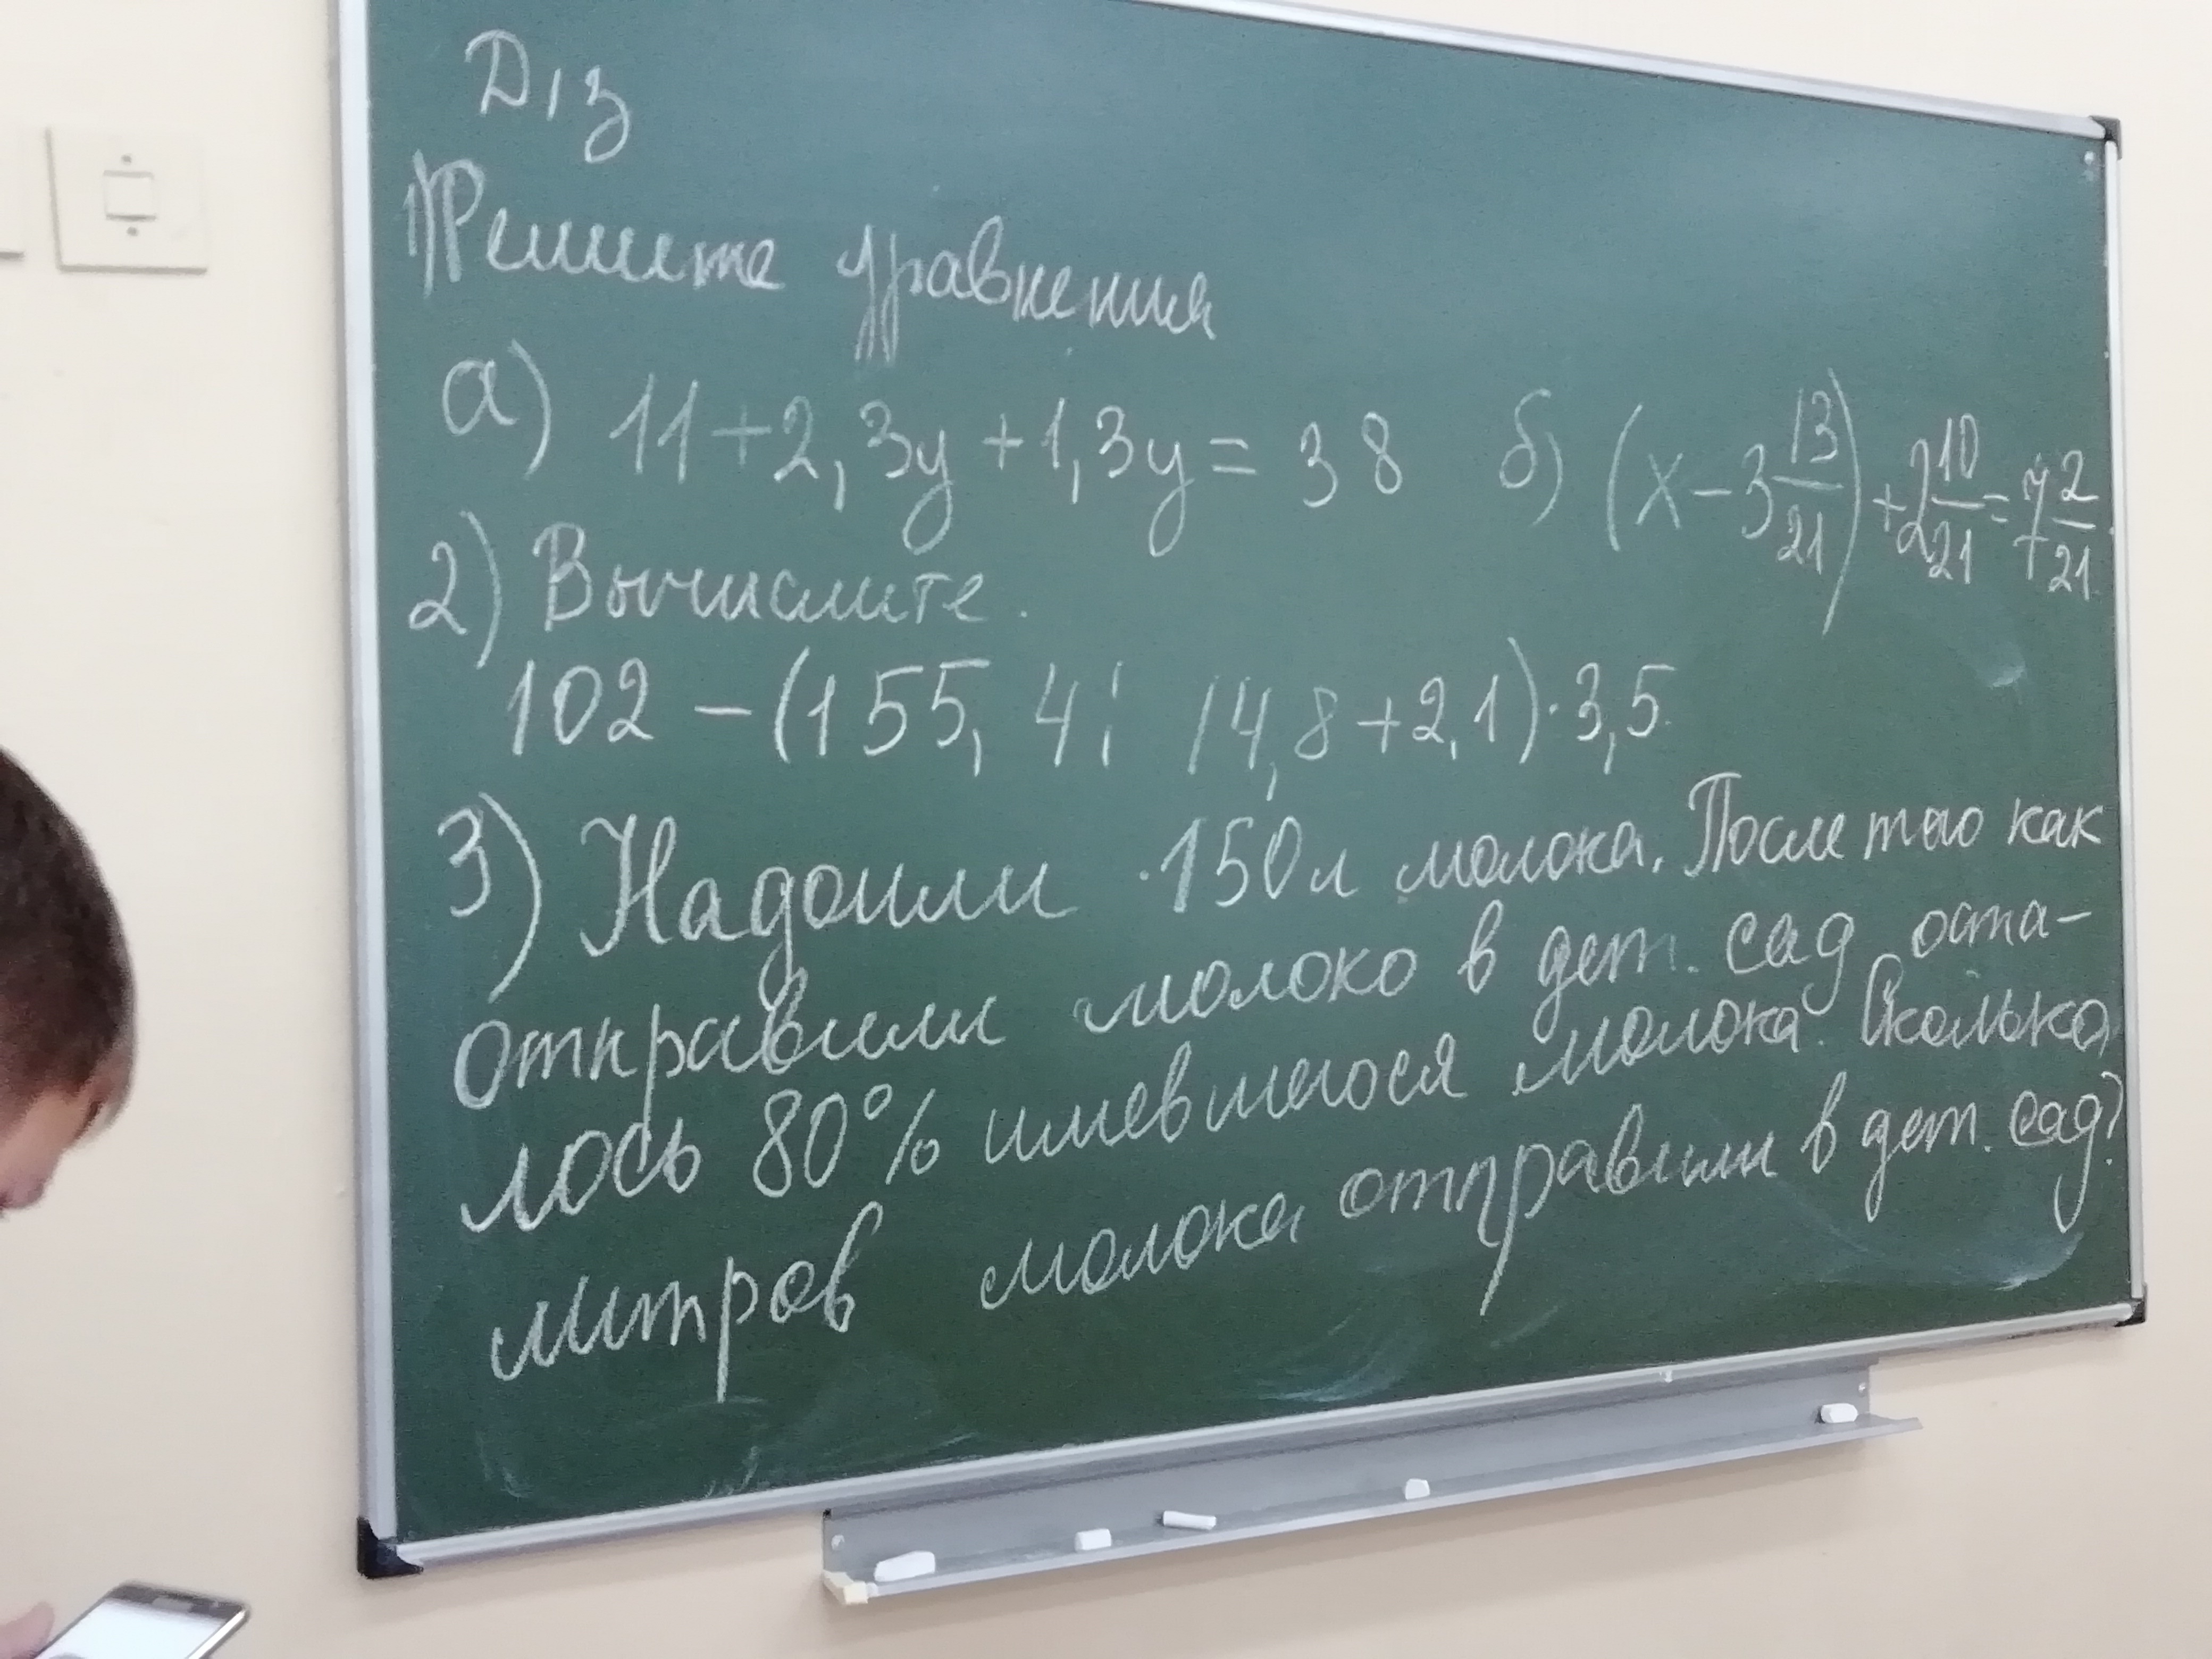 Д/з
1) Решите уравнения
а) 11+2,3y+1,3y=38 б) (x-3 13/21)+2 10/21=7 2/21.
2) Вычислите.
102-(155,4: 14,8+2,1)·3,5.
3) Надоили 150л молока. После того как
отправили молоко в дет. сад оста-
лось 80% имевшегося молока. Сколько
литров молока отправили в дет. сад?